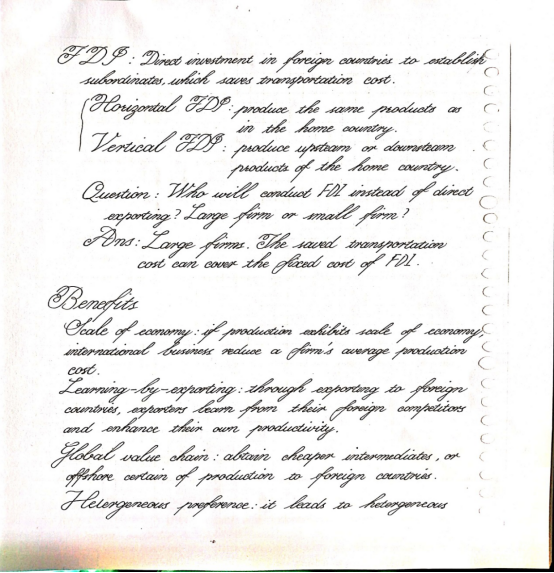 FDI : Direct investment in foreign countries to establish
subordinates, which saves transportation cost.
Horizontal FDI : produce the same products as
in the home country.
Vertical FDI : produce upsteam or downsteam
products of the home country.
Question : Who will conduct FDI instead of direct
exporting? Large firm or small firm?
Ans : Large firms. The saved transportation
cost can cover the fixed cost of FDI.
Benefits
Scale of economy : if production exhibits scale of economy,
international business reduce a firm's average production
cost.
Learning-by-exporting : through exporting to foreign
countries, exporters learn from their foreign competitors
and enhance their own productivity.
Global value chain : abtain cheaper intermediates, or
offshore certain of production to foreign countries.
Hetergeneous preference : it leads to hetergneous